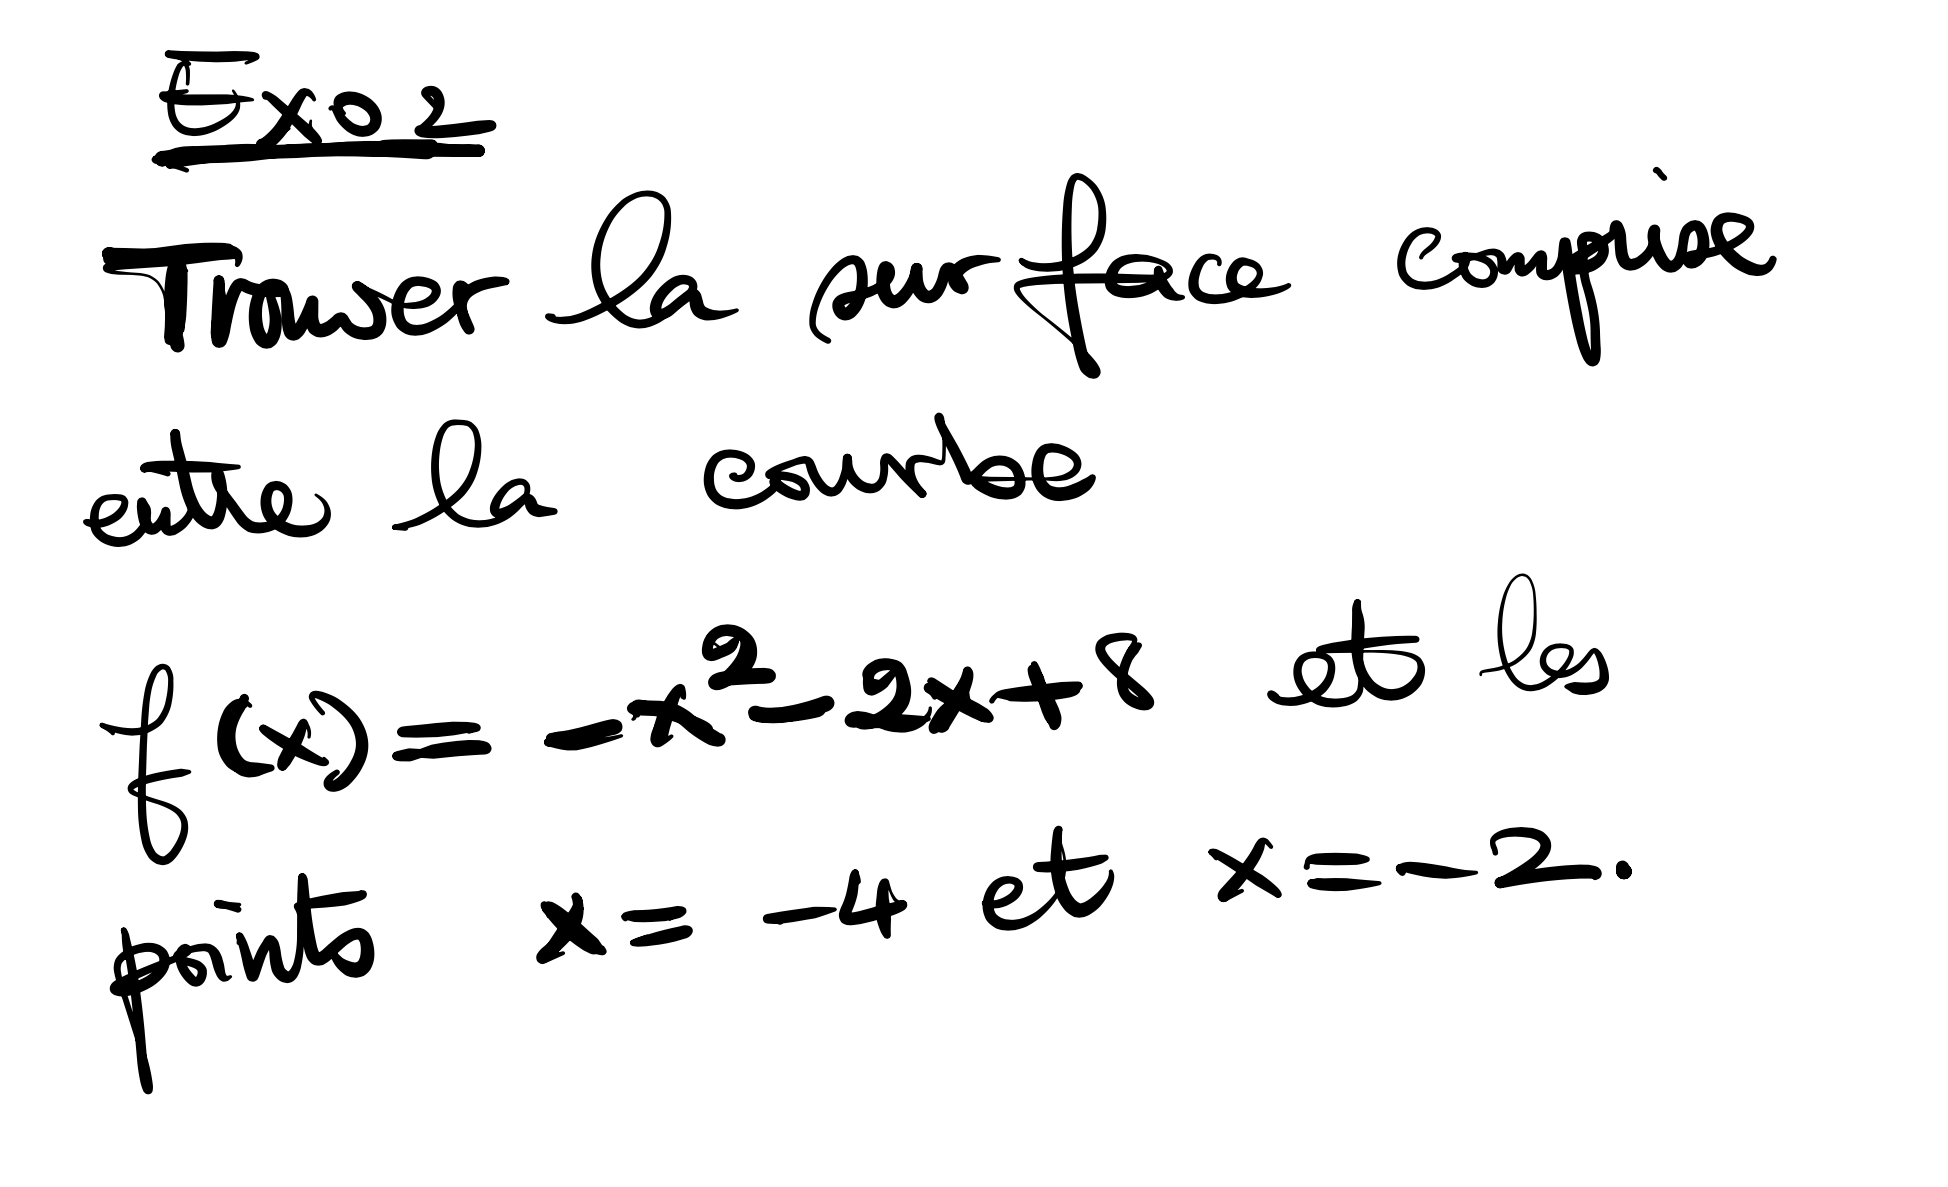 Exo 2
Trouver la surface comprise
entre la courbe
f(x) = -x² - 2x + 8 et les
points x = -4 et x = -2.